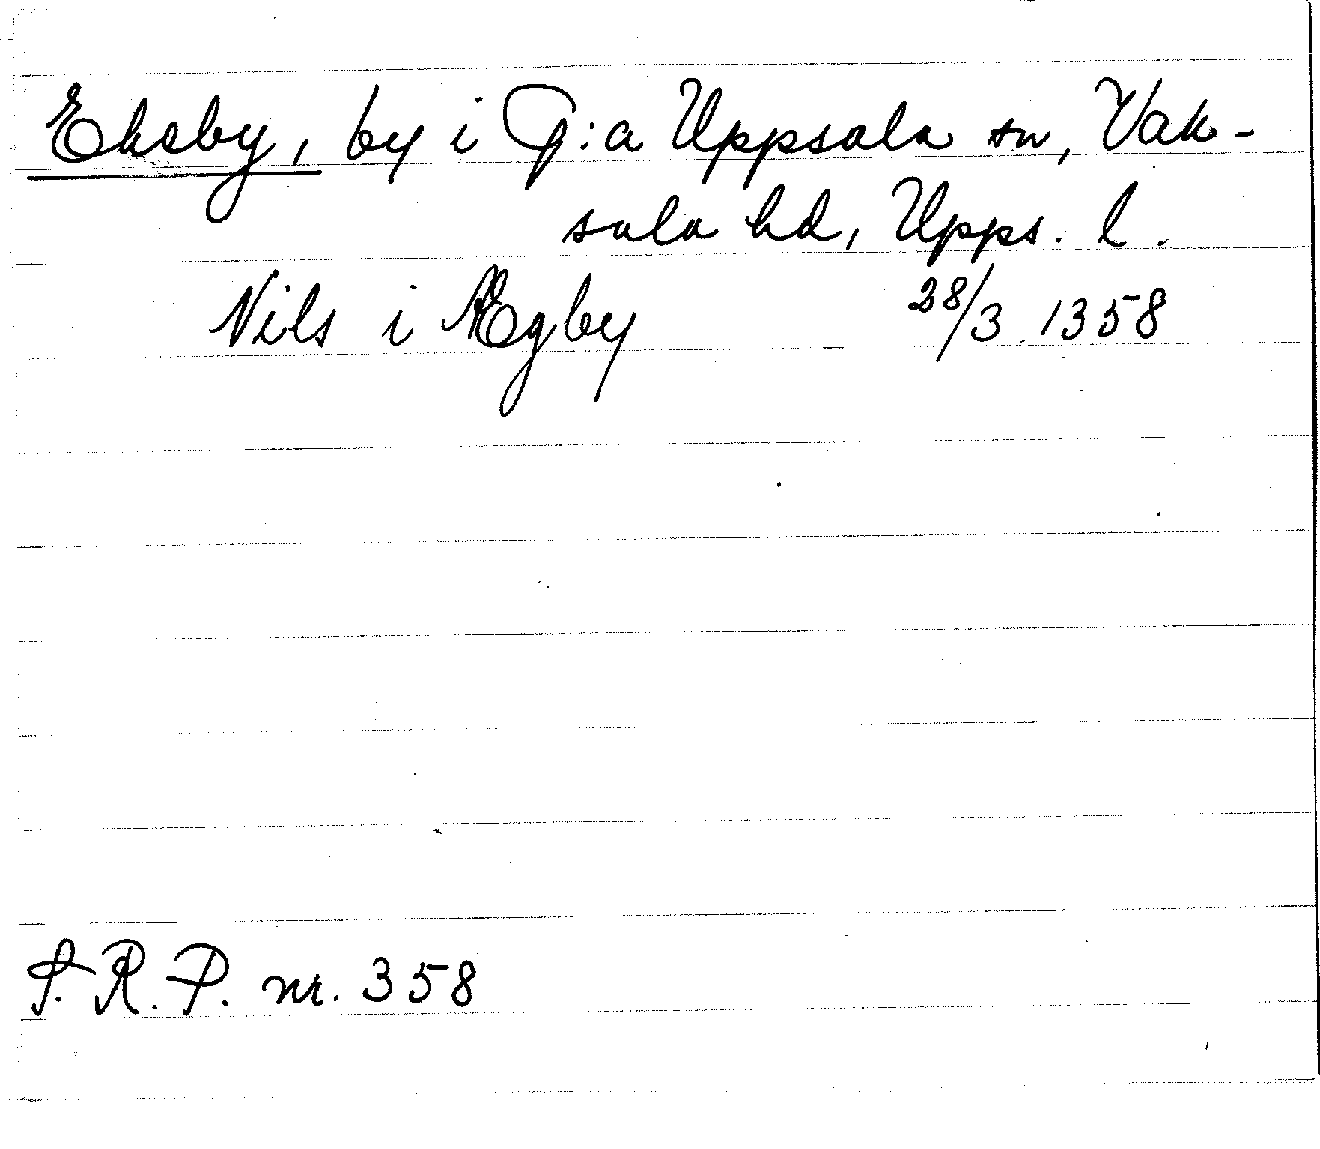 Eksby, by i G:a Uppsala sn, Vak-
sala hd, Upps. l.
Nils i Ægby 28/3 1358
S.R.P. nr. 358